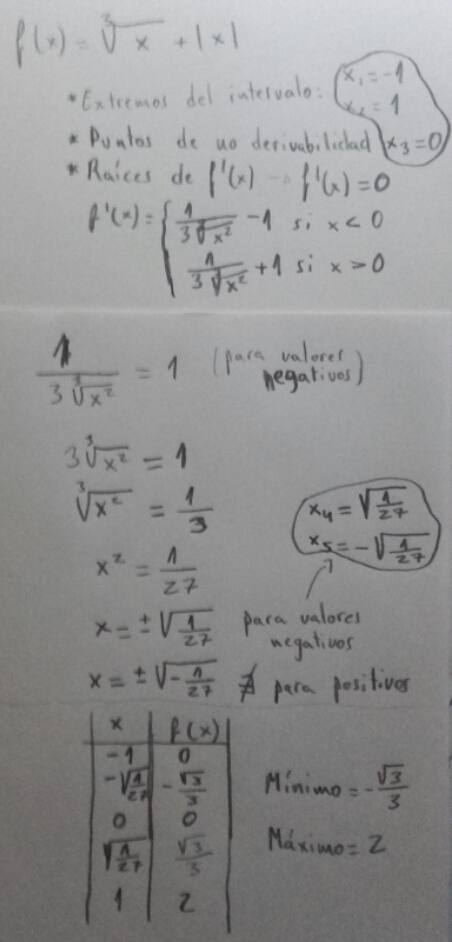 f(x) = ∛x + |x|
* Extremos del intervalo: x₁ = -1
x₂ = 1
* Puntos de no derivabilidad x₃ = 0
* Raíces de f'(x) → f'(x) = 0
f'(x) = { 1/(3∛x²) - 1 si x < 0
1/(3∛x²) + 1 si x > 0
1/(3∛x²) = 1 (para valores negativos)
3∛x² = 1
∛x² = 1/3
x₄ = √(1/27)
x₅ = -√(1/27)
x² = 1/27
x = ±√(1/27) para valores negativos
x = ±√(-1/27) ∄ para positivos
x | f(x)
-1 | 0
-√(1/27) | -√3/3
0 | 0
√(1/27) | √3/3
1 | 2
Mínimo = -√3/3
Máximo = 2